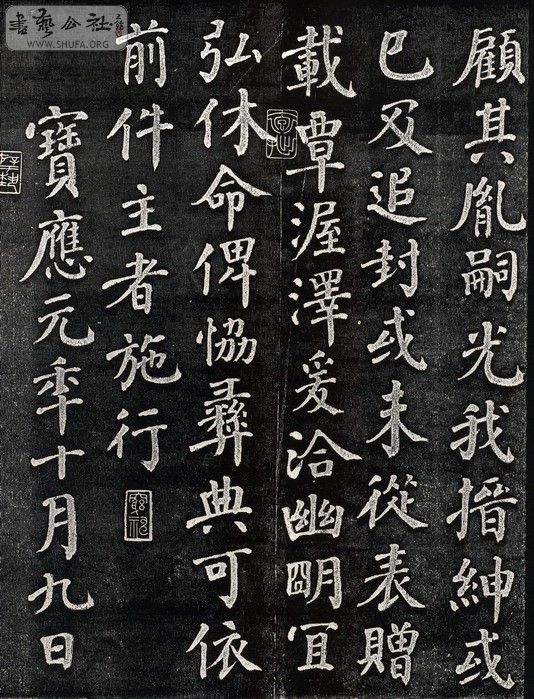 顧其胤嗣光我搢紳或
已及追封或未從表贈
載覃渥澤爰洽幽明宜
弘休命俾恊彝典可依
前件主者施行
寶應元年十月九日
書藝公社
WWW.SHUFA.ORG